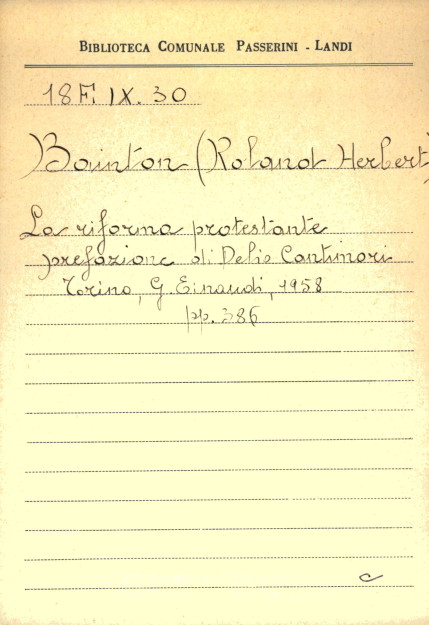 BIBLIOTECA COMUNALE PASSERINI - LANDI
18 F. IX. 30
Bainton (Roland Herbert)
La riforma protestante
prefazione di Delio Cantimori
Torino, G. Einaudi, 1958
pp. 386
c